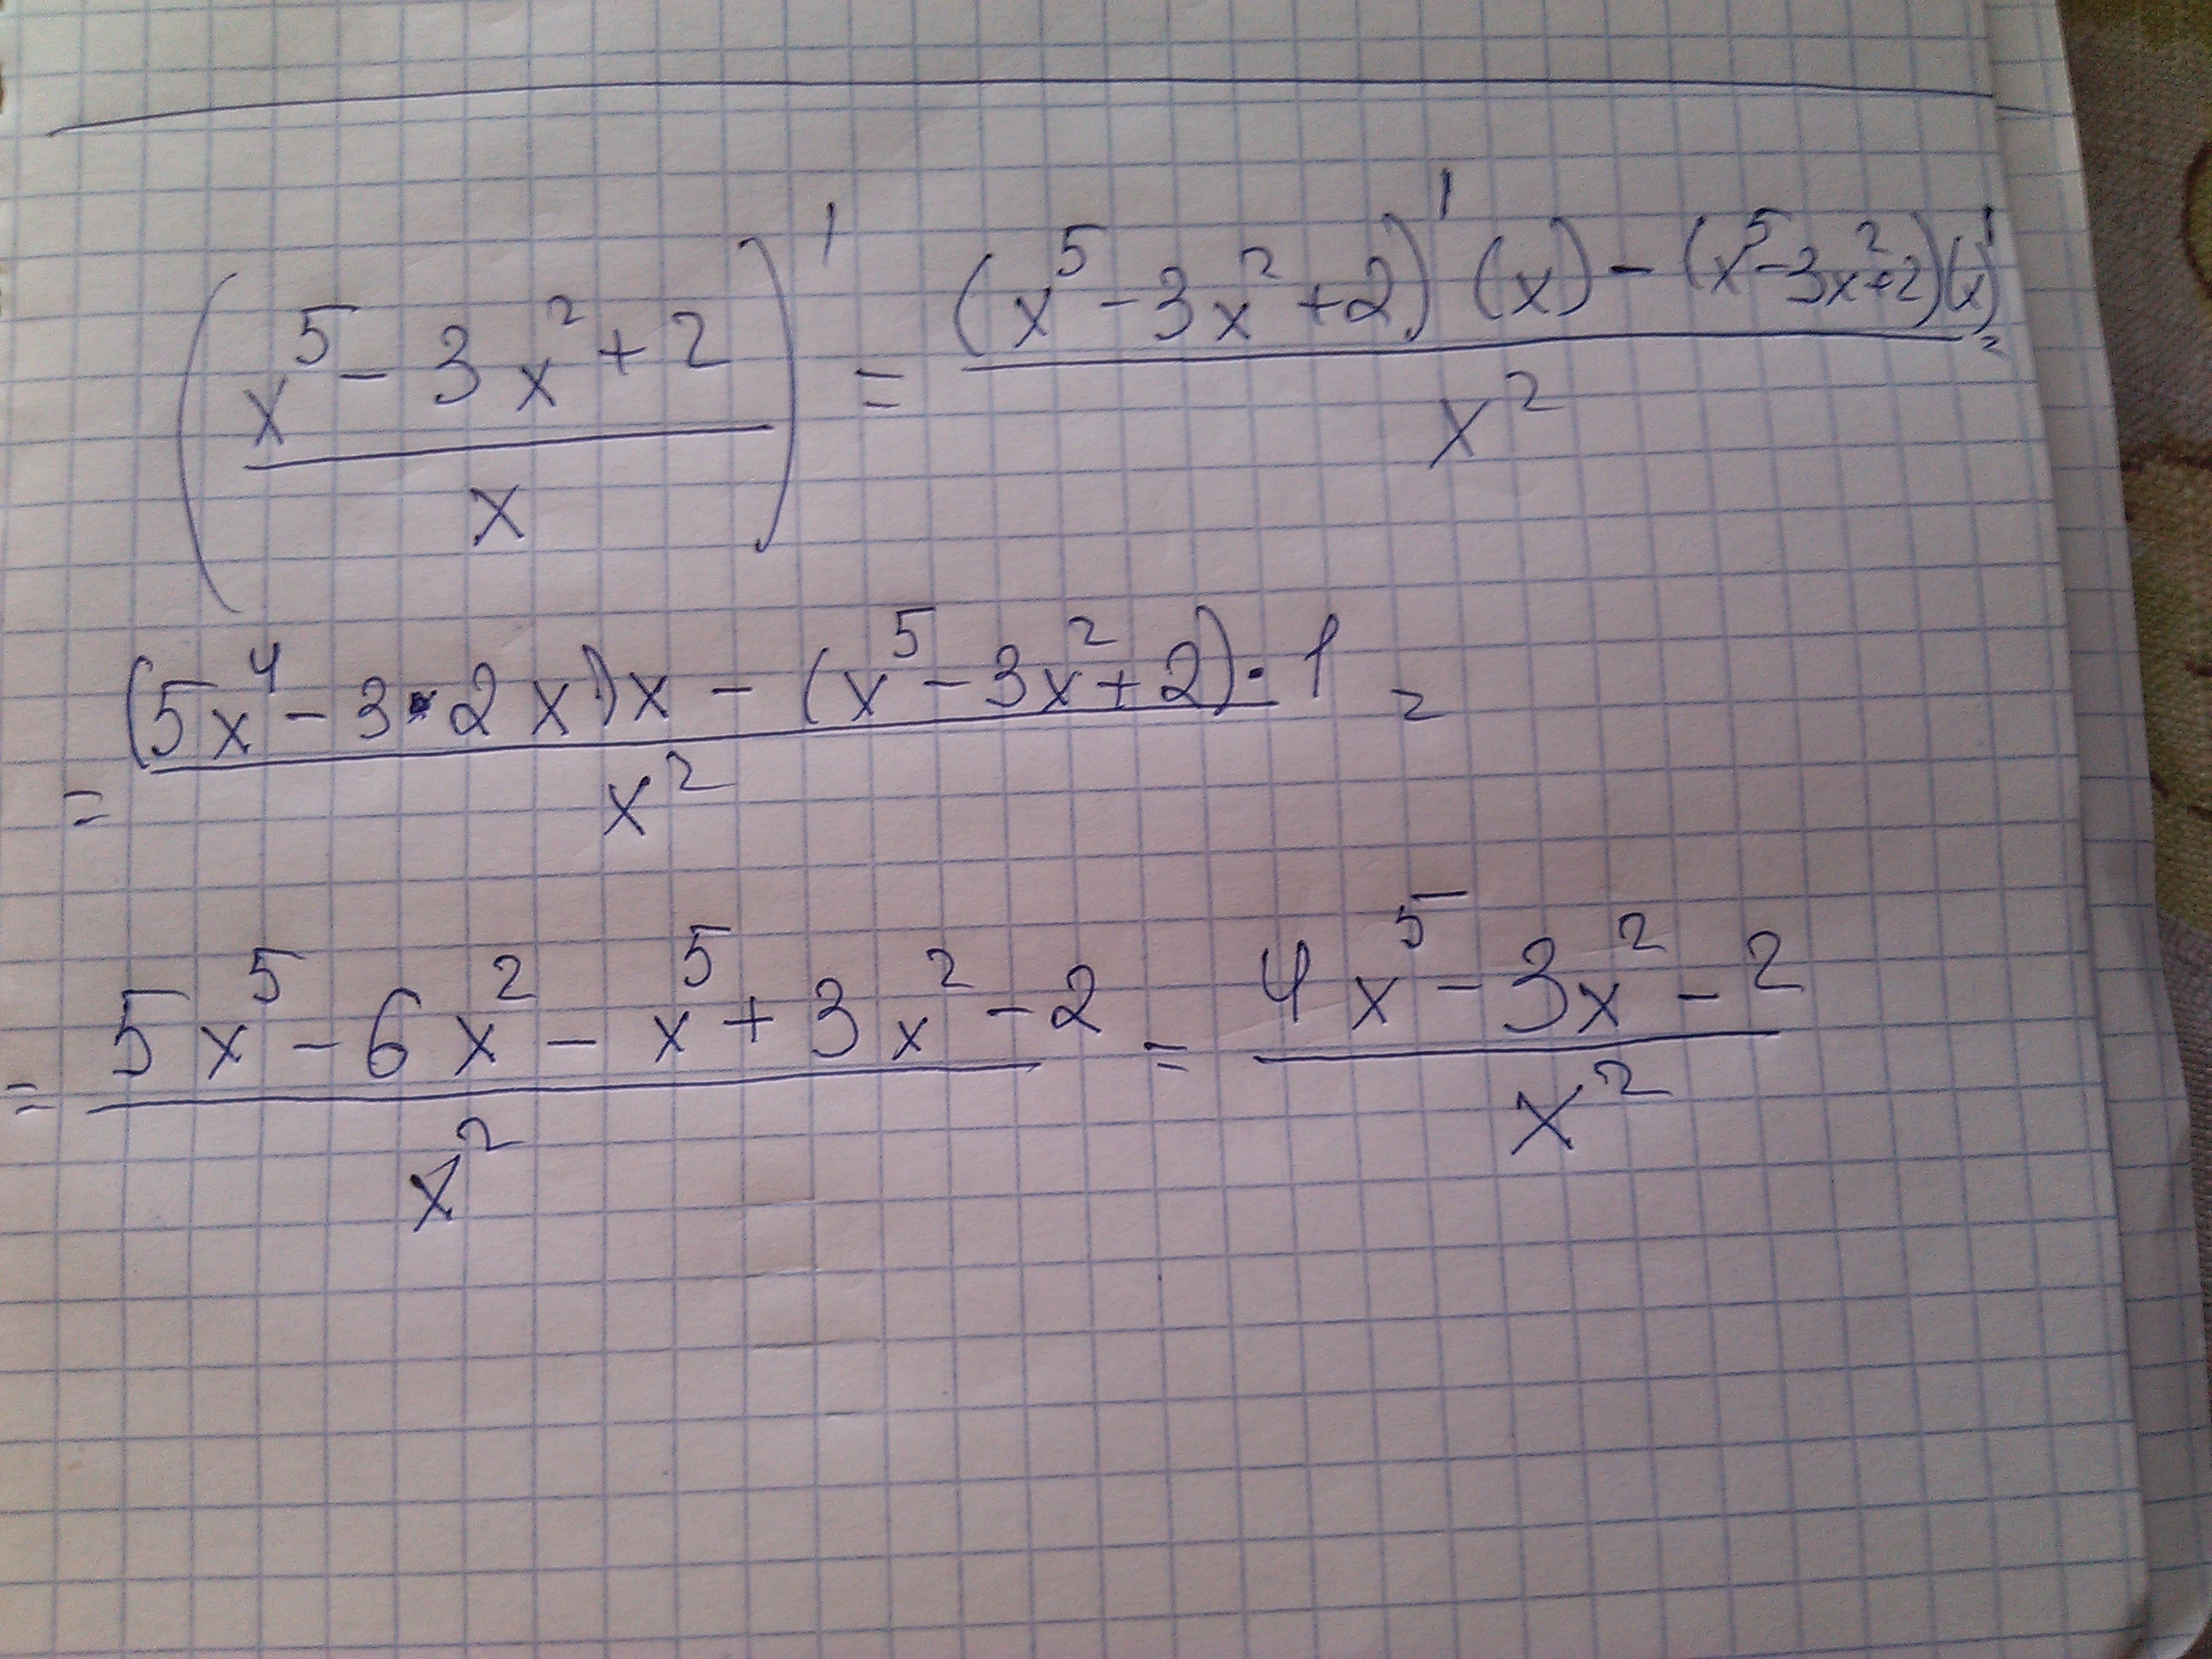 (x⁵ - 3x² + 2 / x)' = (x⁵ - 3x² + 2)' (x) - (x⁵ - 3x² + 2)(x)' / x² =
= (5x⁴ - 3 · 2x)x - (x⁵ - 3x² + 2) · 1 / x² =
= 5x⁵ - 6x² - x⁵ + 3x² - 2 / x² = 4x⁵ - 3x² - 2 / x²